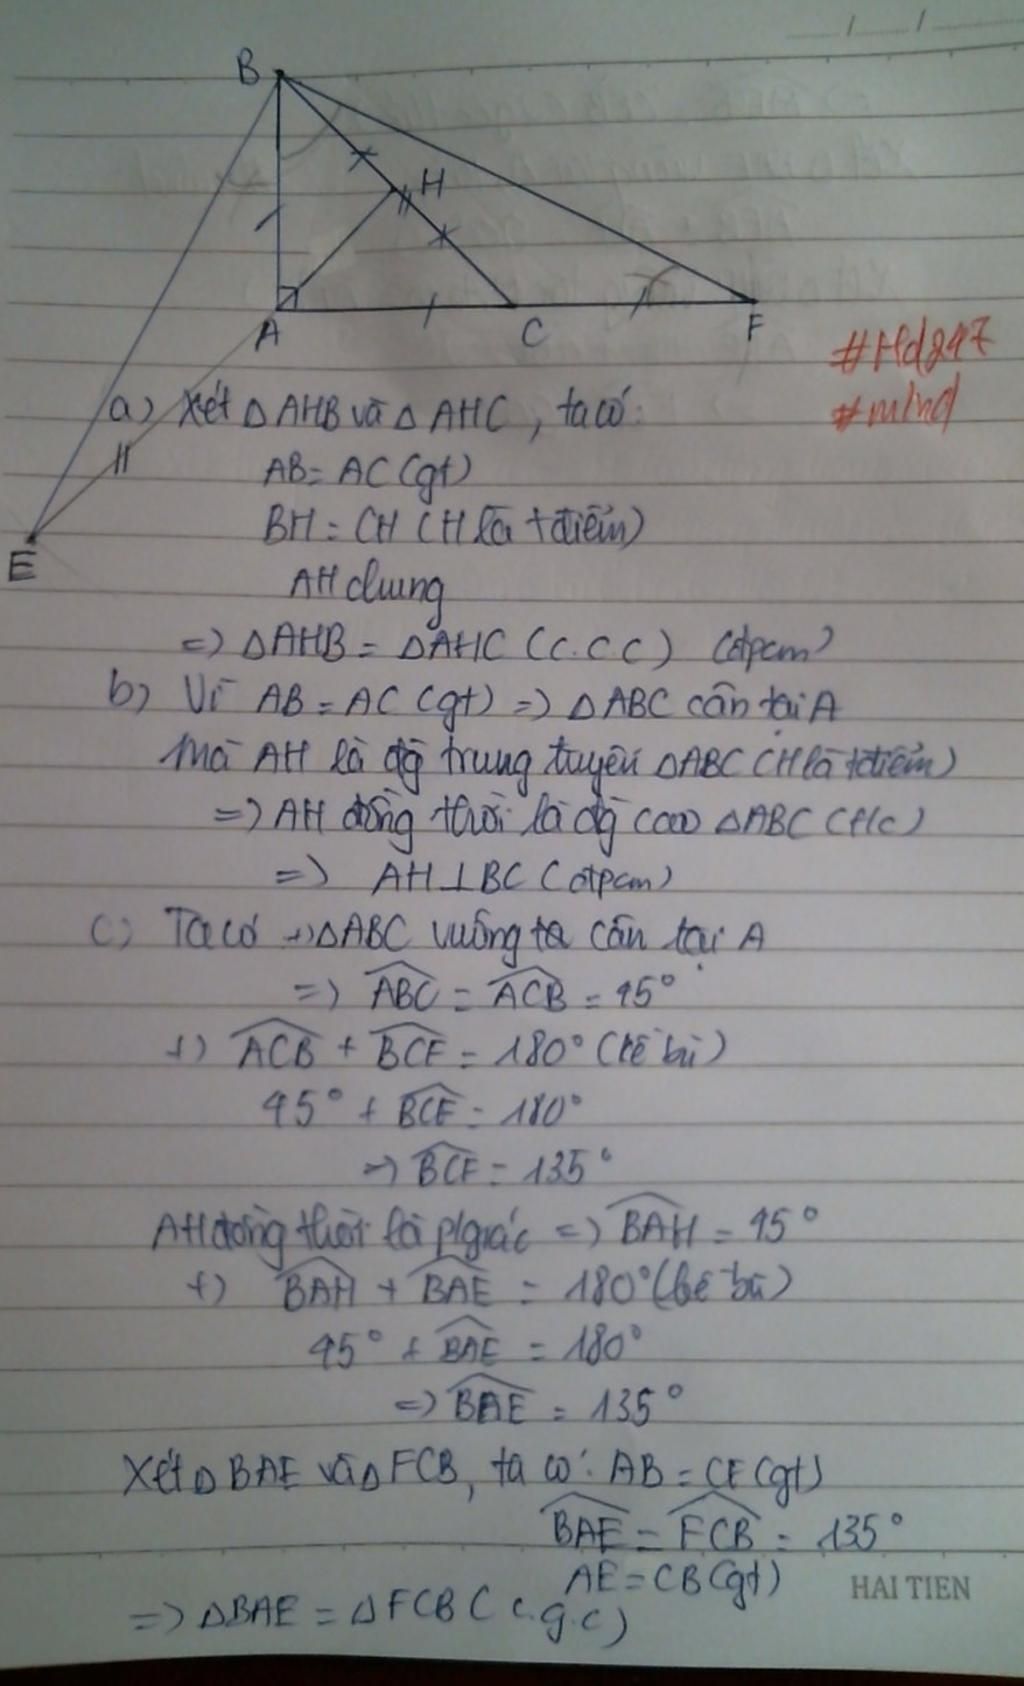 B
H
A
C
F
E
#Hd247
#mind
a) Xét △AHB và △AHC, ta có:
AB = AC (gt)
BH = CH (H là tđiểm)
AH chung
=> △AHB = △AHC (c.c.c) (đpcm)
b) Vì AB = AC (gt) => △ABC cân tại A
Mà AH là đg trung tuyến △ABC (H là tđiểm)
=> AH đồng thời là đg cao △ABC (t/c)
=> AH ⊥ BC (đpcm)
c) Ta có +) △ABC vuông ta cân tại A
=> ABC = ACB = 45°
+) ACB + BCF = 180° (kề bù)
45° + BCF = 180°
=> BCF = 135°
AH đồng thời là p/giác => BAH = 45°
+) BAH + BAE = 180° (kề bù)
45° + BAE = 180°
=> BAE = 135°
Xét △BAE và △FCB, ta có: AB = CF (gt)
BAE = FCB = 135°
AE = CB (gt)
=> △BAE = △FCB (c.g.c)
HAI TIEN